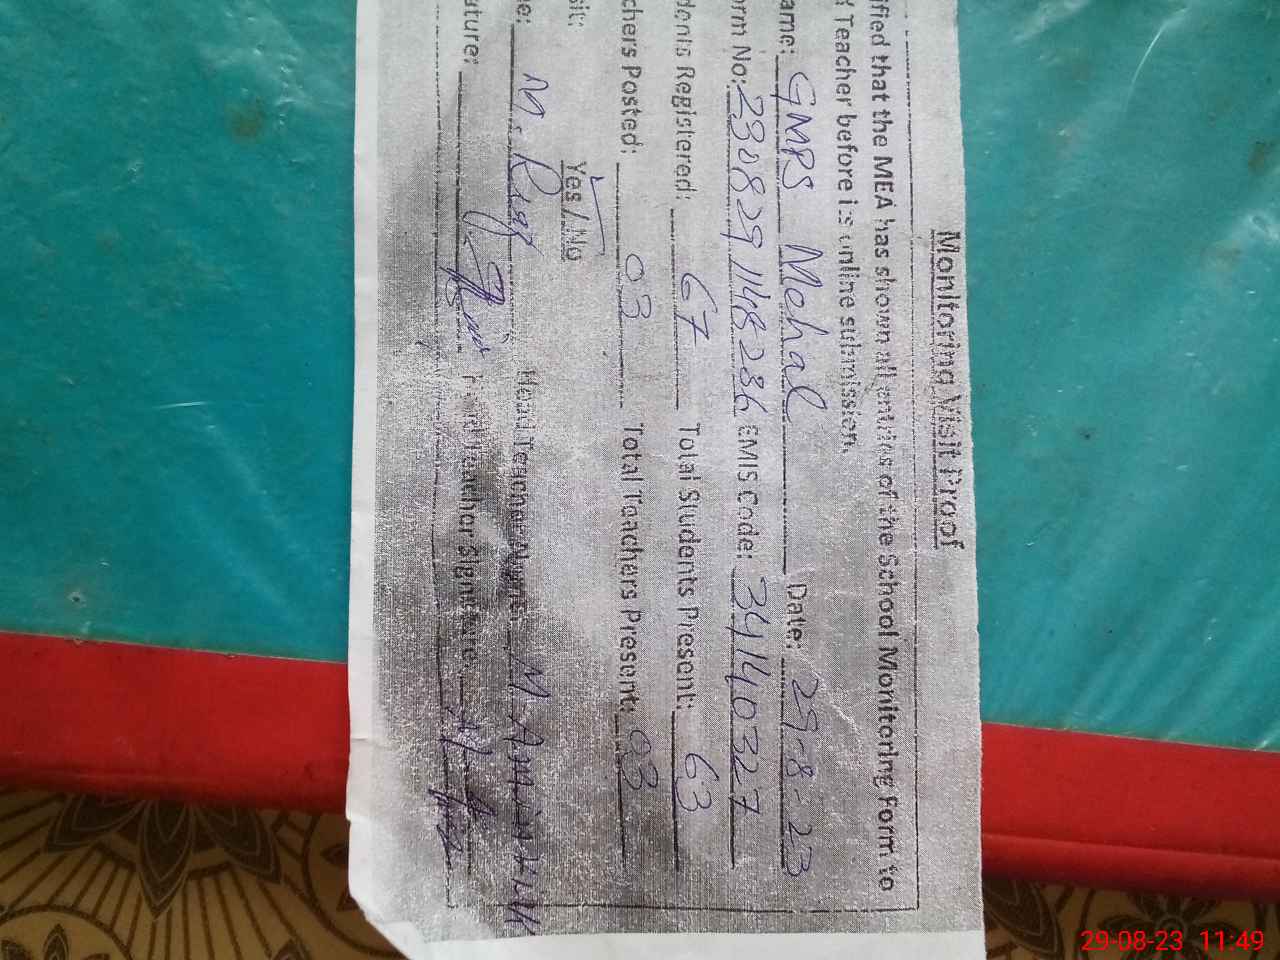 Monitoring Visit Proof
ified that the MEA has shown all entries of the School Monitoring Form to
Teacher before its online submission.
ame: GMPS Mehal Date: 29-8-23
orm No: 230829114828 EMIS Code: 34140327
dents Registered: 67 Total Students Present: 63
chers Posted: 03 Total Teachers Present: 03
sit: Yes/No
e: M. Riaz Head Teacher Name: M Amin
ature: Head Teacher Signature:
29-08-23 11:49